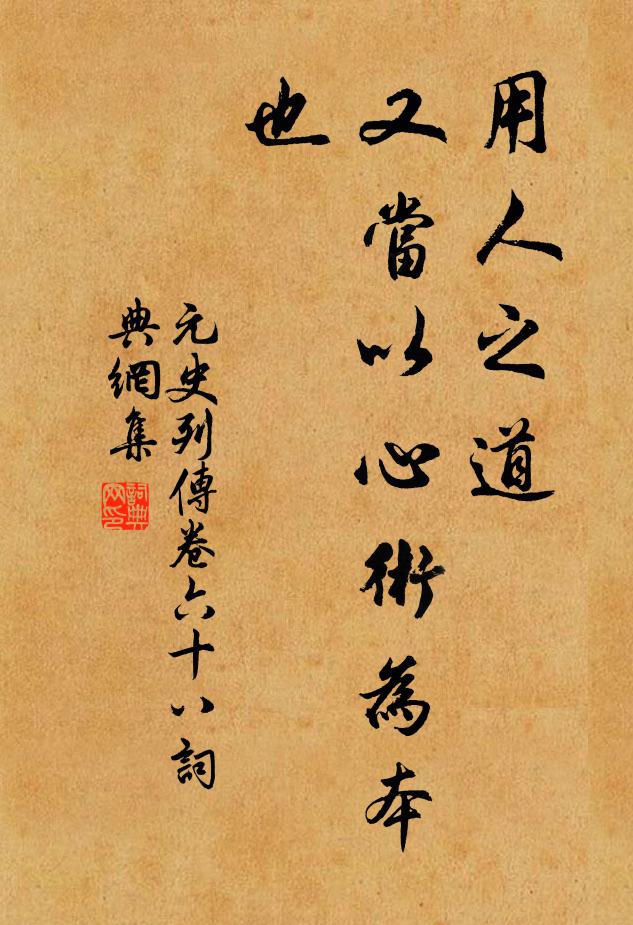 用人之道
又當以心術為本
也
元史列傳卷六十八詞
典網集
詞典
网印